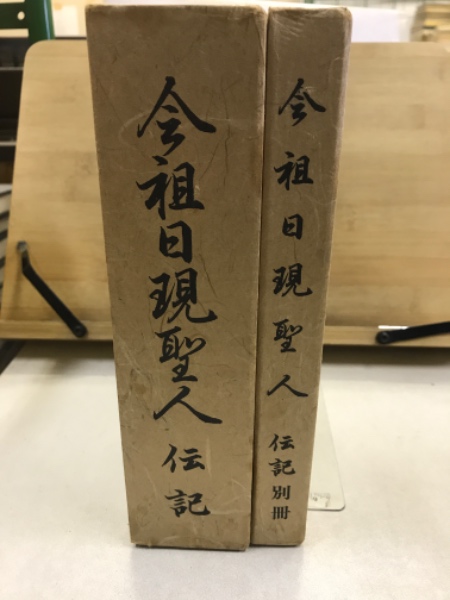 会祖日現聖人 伝記
会祖日現聖人 伝記別冊